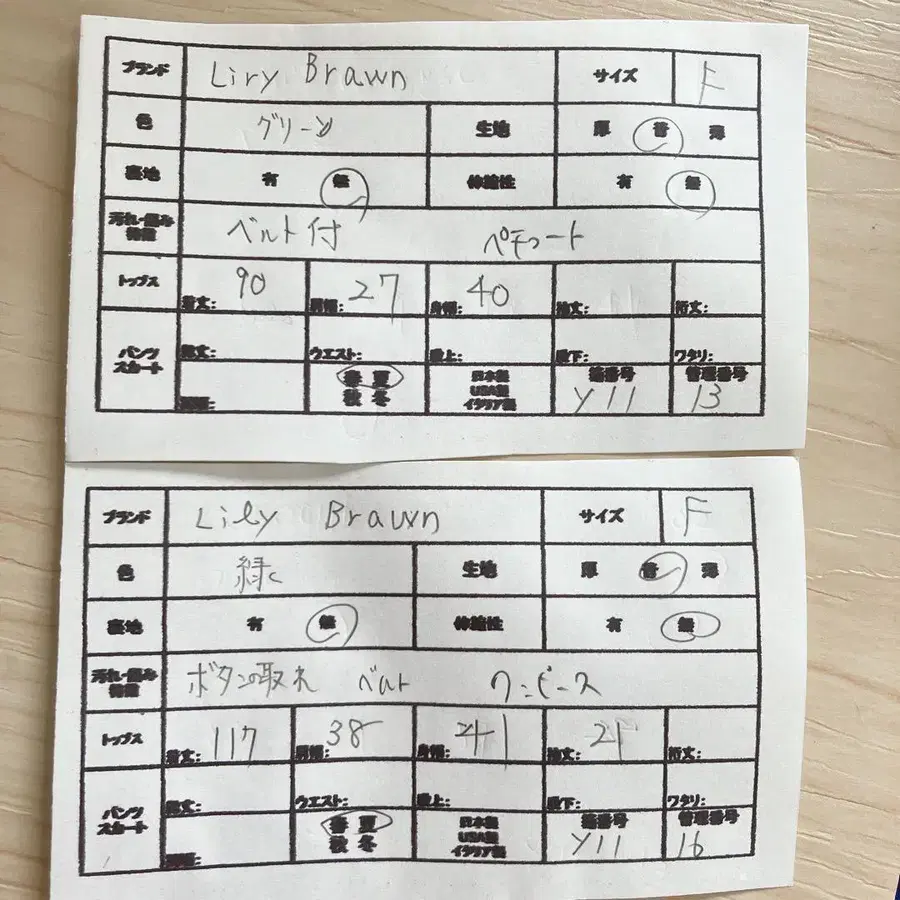 ブランド Liry Brawn サイズ F
色 グリーン 生地 厚 普 薄
裏地 有 無 伸縮性 有 無
汚れ・傷み 特徴 ベルト付 ペチコート
トップス 着丈: 90 肩幅: 27 身幅: 40 袖丈: 裄丈:
パンツ スカート 総丈: ウエスト: 股上: 股下: ワタリ:
春 夏 秋 冬 日本製 USA製 イタリア製 箱番号 Y11 管理番号 13
ブランド Lily Brawn サイズ F
色 緑 生地 厚 普 薄
裏地 有 無 伸縮性 有 無
汚れ・傷み 特徴 ボタンの取れ ベルト ワンピース
トップス 着丈: 117 肩幅: 38 身幅: 41 袖丈: 21 裄丈:
パンツ スカート 総丈: ウエスト: 股上: 股下: ワタリ:
春 夏 秋 冬 日本製 USA製 イタリア製 箱番号 Y11 管理番号 16